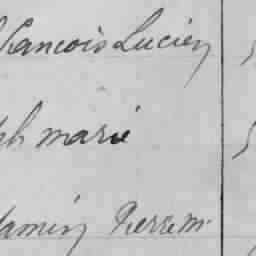 François Lucien
ph marie
jamin Pierre m